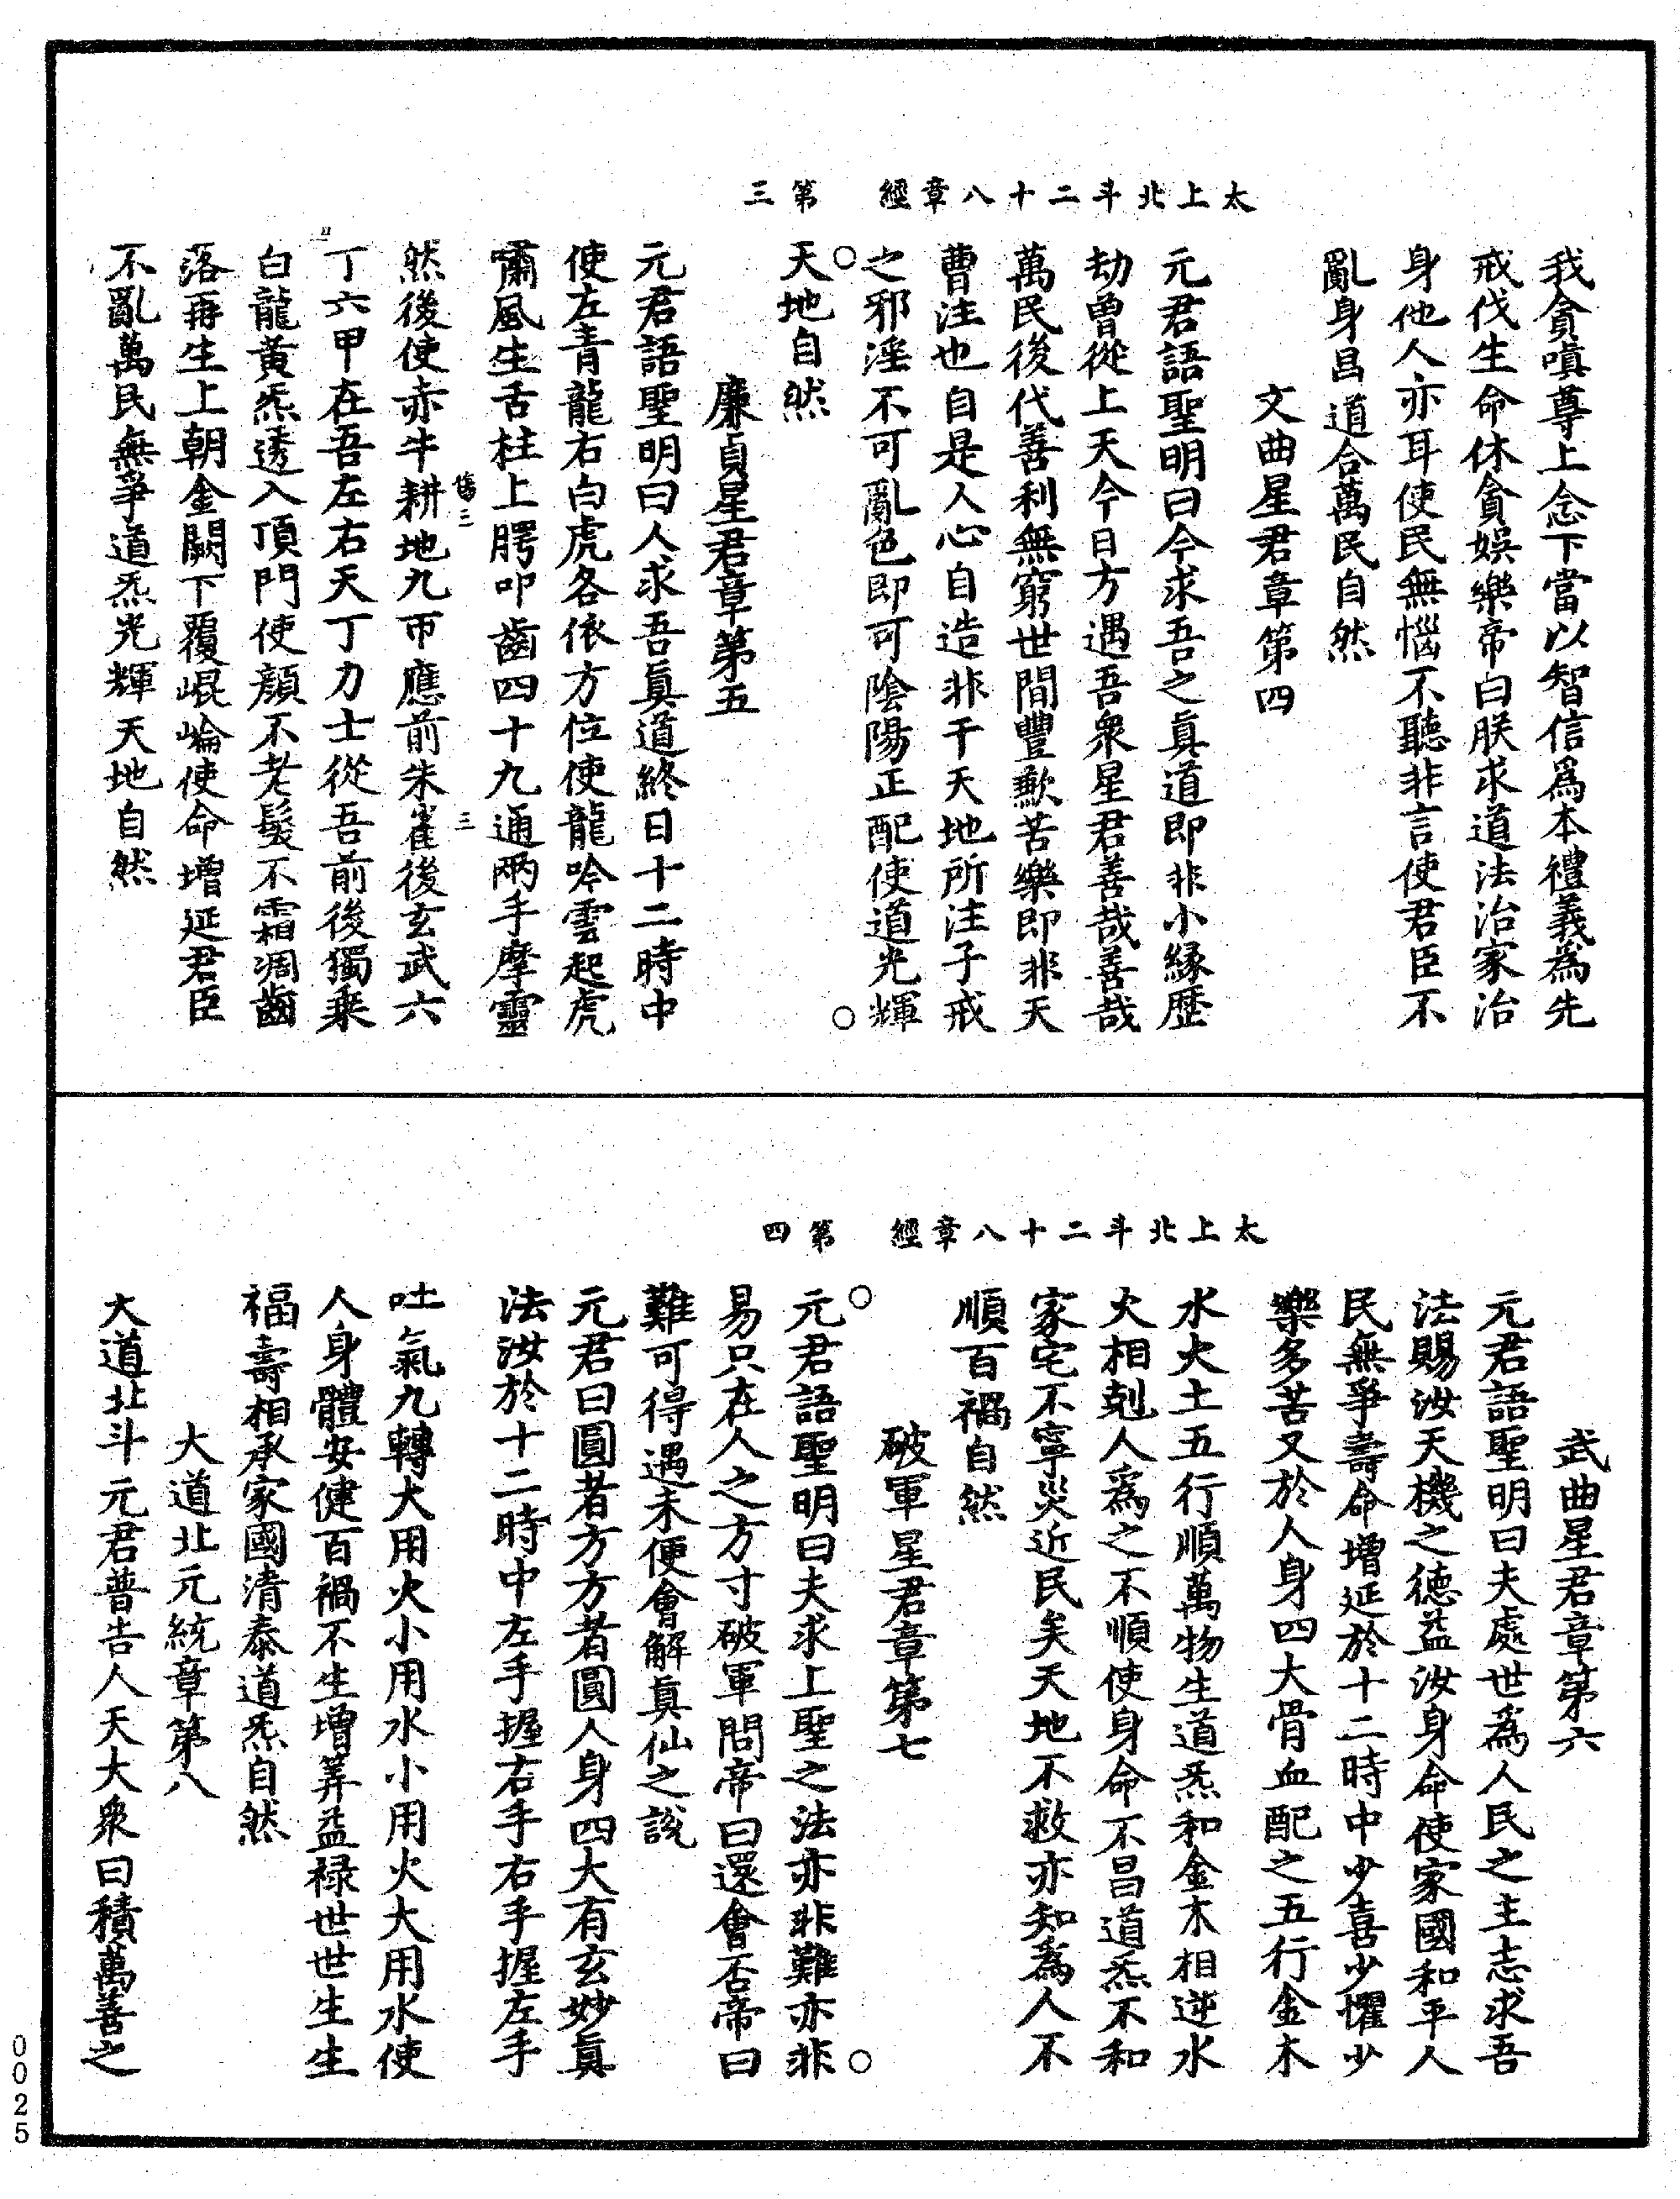 太上北斗二十八章經　第三
我貪嗔尊上念下當以智信爲本禮義爲先
戒伐生命休貪娯樂帝曰朕求道法治家治
身他人亦耳使民無惱不聽非言使君臣不
亂身昌道合萬民自然
文曲星君章第四
元君語聖明曰今求吾之眞道即非小縁歴
劫曽從上天今日方遇吾衆星君善哉善哉
萬民後代善利無窮世間豐歉苦樂即非天
曹注也自是人心自造非干天地所注子戒
之邪淫不可亂色即可陰陽正配使道光輝
天地自然
廉貞星君章第五
元君語聖明曰人求吾眞道終日十二時中
使左青龍右白虎各依方位使龍吟雲起虎
嘯風生舌柱上腭叩齒四十九通兩手摩靈
然後使赤牛耕地九帀應前朱雀後玄武六
丁六甲在吾左右天丁力士從吾前後獨乗
白龍黄炁透入頂門使顔不老髮不霜凋齒
落再生上朝金闕下覆崐崘使命增延君臣
不亂萬民無爭道炁光輝天地自然
太上北斗二十八章經　第四
武曲星君章第六
元君語聖明曰夫處世爲人民之主志求吾
法賜汝天機之德益汝身命使家國和平人
民無爭壽命增延於十二時中少喜少懼少
樂多苦又於人身四大骨血配之五行金木
水火土五行順萬物生道炁和金木相逆水
火相剋人爲之不順使身命不昌道炁不和
家宅不寧災近民矣天地不救亦知爲人不
順百禍自然
破軍星君章第七
元君語聖明曰夫求上聖之法亦非難亦非
易只在人之方寸破軍問帝曰還會否帝曰
難可得遇未便會解眞仙之說
元君曰圓者方方者圓人身四大有玄妙眞
法汝於十二時中左手握右手右手握左手
吐氣九轉大用火小用水小用火大用水使
人身體安健百禍不生增筭益禄世世生生
福壽相承家國清泰道炁自然
大道北元統章第八
大道北斗元君普告人天大衆曰積萬善之
0025